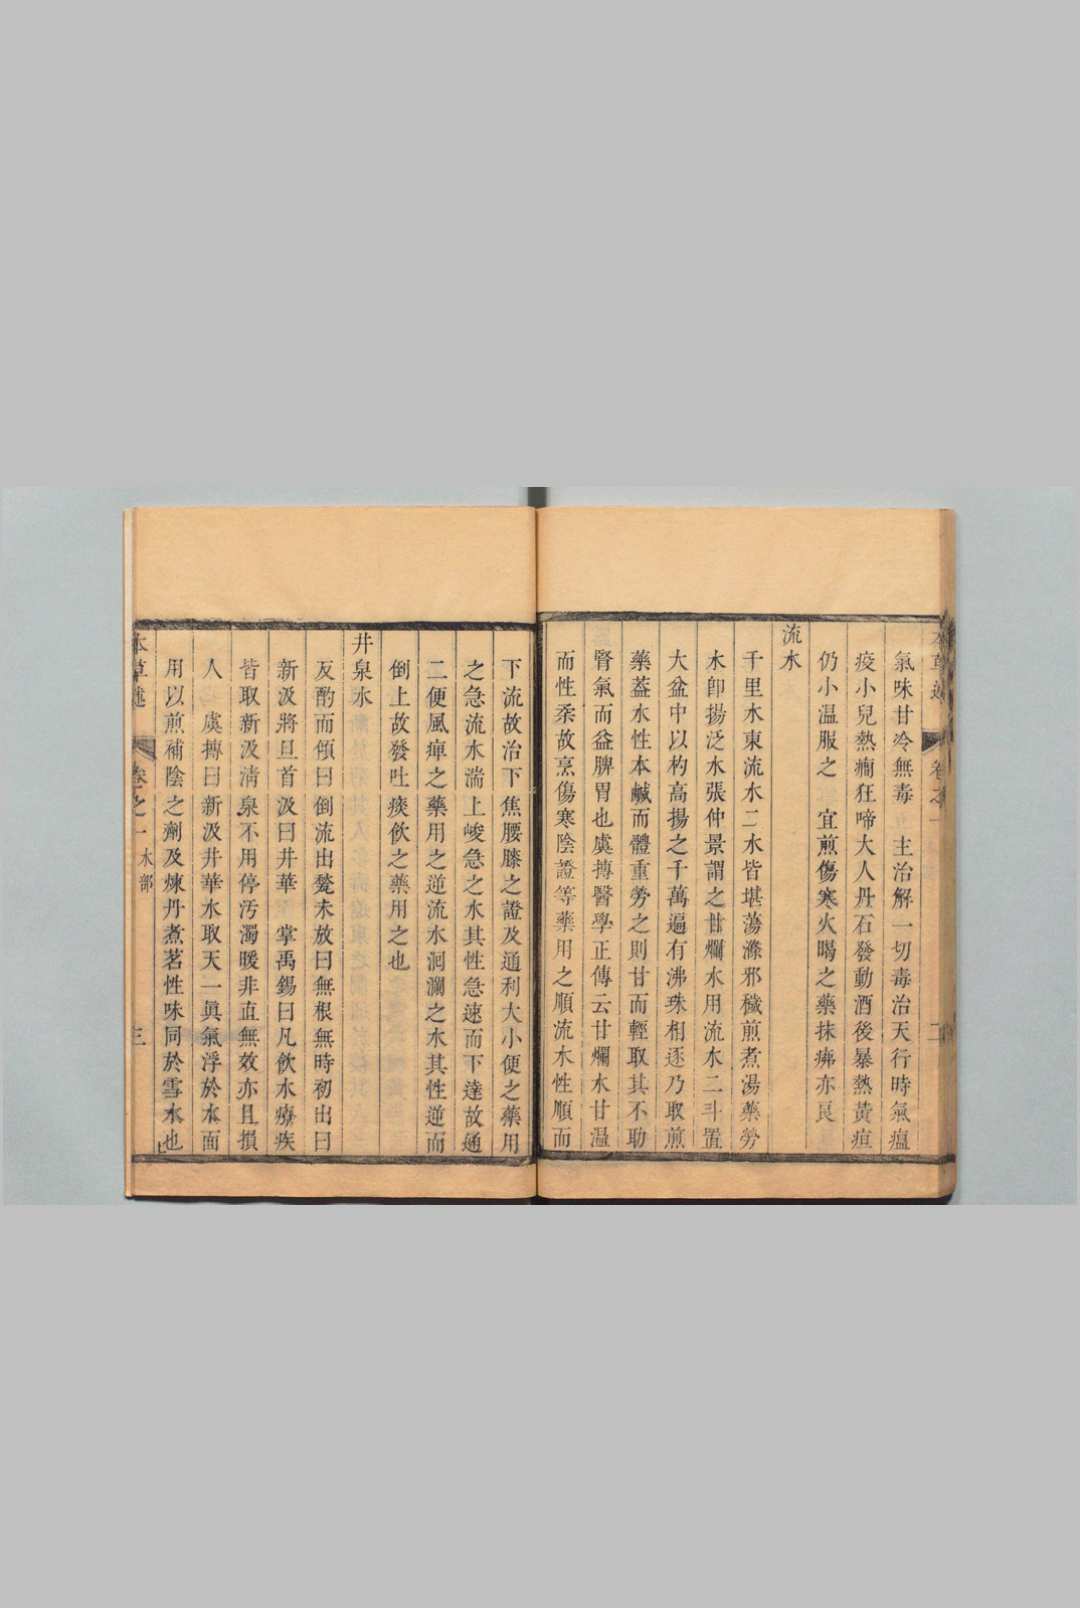 氣味甘冷無毒 主治解一切毒治天行時氣瘟
疫小兒熱癎狂啼大人丹石發動酒後暴熱黃疸
仍小温服之 宜煎傷寒火暍之藥抹痱亦良
流水
千里水東流水二水皆堪蕩滌邪穢煎煮湯藥勞
水卽揚泛水張仲景謂之甘爛水用流水二斗置
大盆中以杓高揚之千萬遍有沸珠相逐乃取煎
藥葢水性本鹹而體重勞之則甘而輕取其不助
腎氣而益脾胃也虞摶醫學正傳云甘爛水甘温
而性柔故烹傷寒陰證等藥用之順流水性順而
下流故治下焦腰膝之證及通利大小便之藥用
之急流水湍上峻急之水其性急速而下達故通
二便風痺之藥用之逆流水洄瀾之水其性逆而
倒上故發吐痰飲之藥用之也
井泉水
反酌而傾曰倒流出甃未放曰無根無時初出曰
新汲將旦首汲曰井華 掌禹錫曰凡飲水療疾
皆取新汲淸泉不用停汚濁暖非直無效亦且損
人 虞摶曰新汲井華水取天一眞氣浮於水面
用以煎補陰之劑及煉丹煮茗性味同於雪水也
本草述 卷之一 水部 三